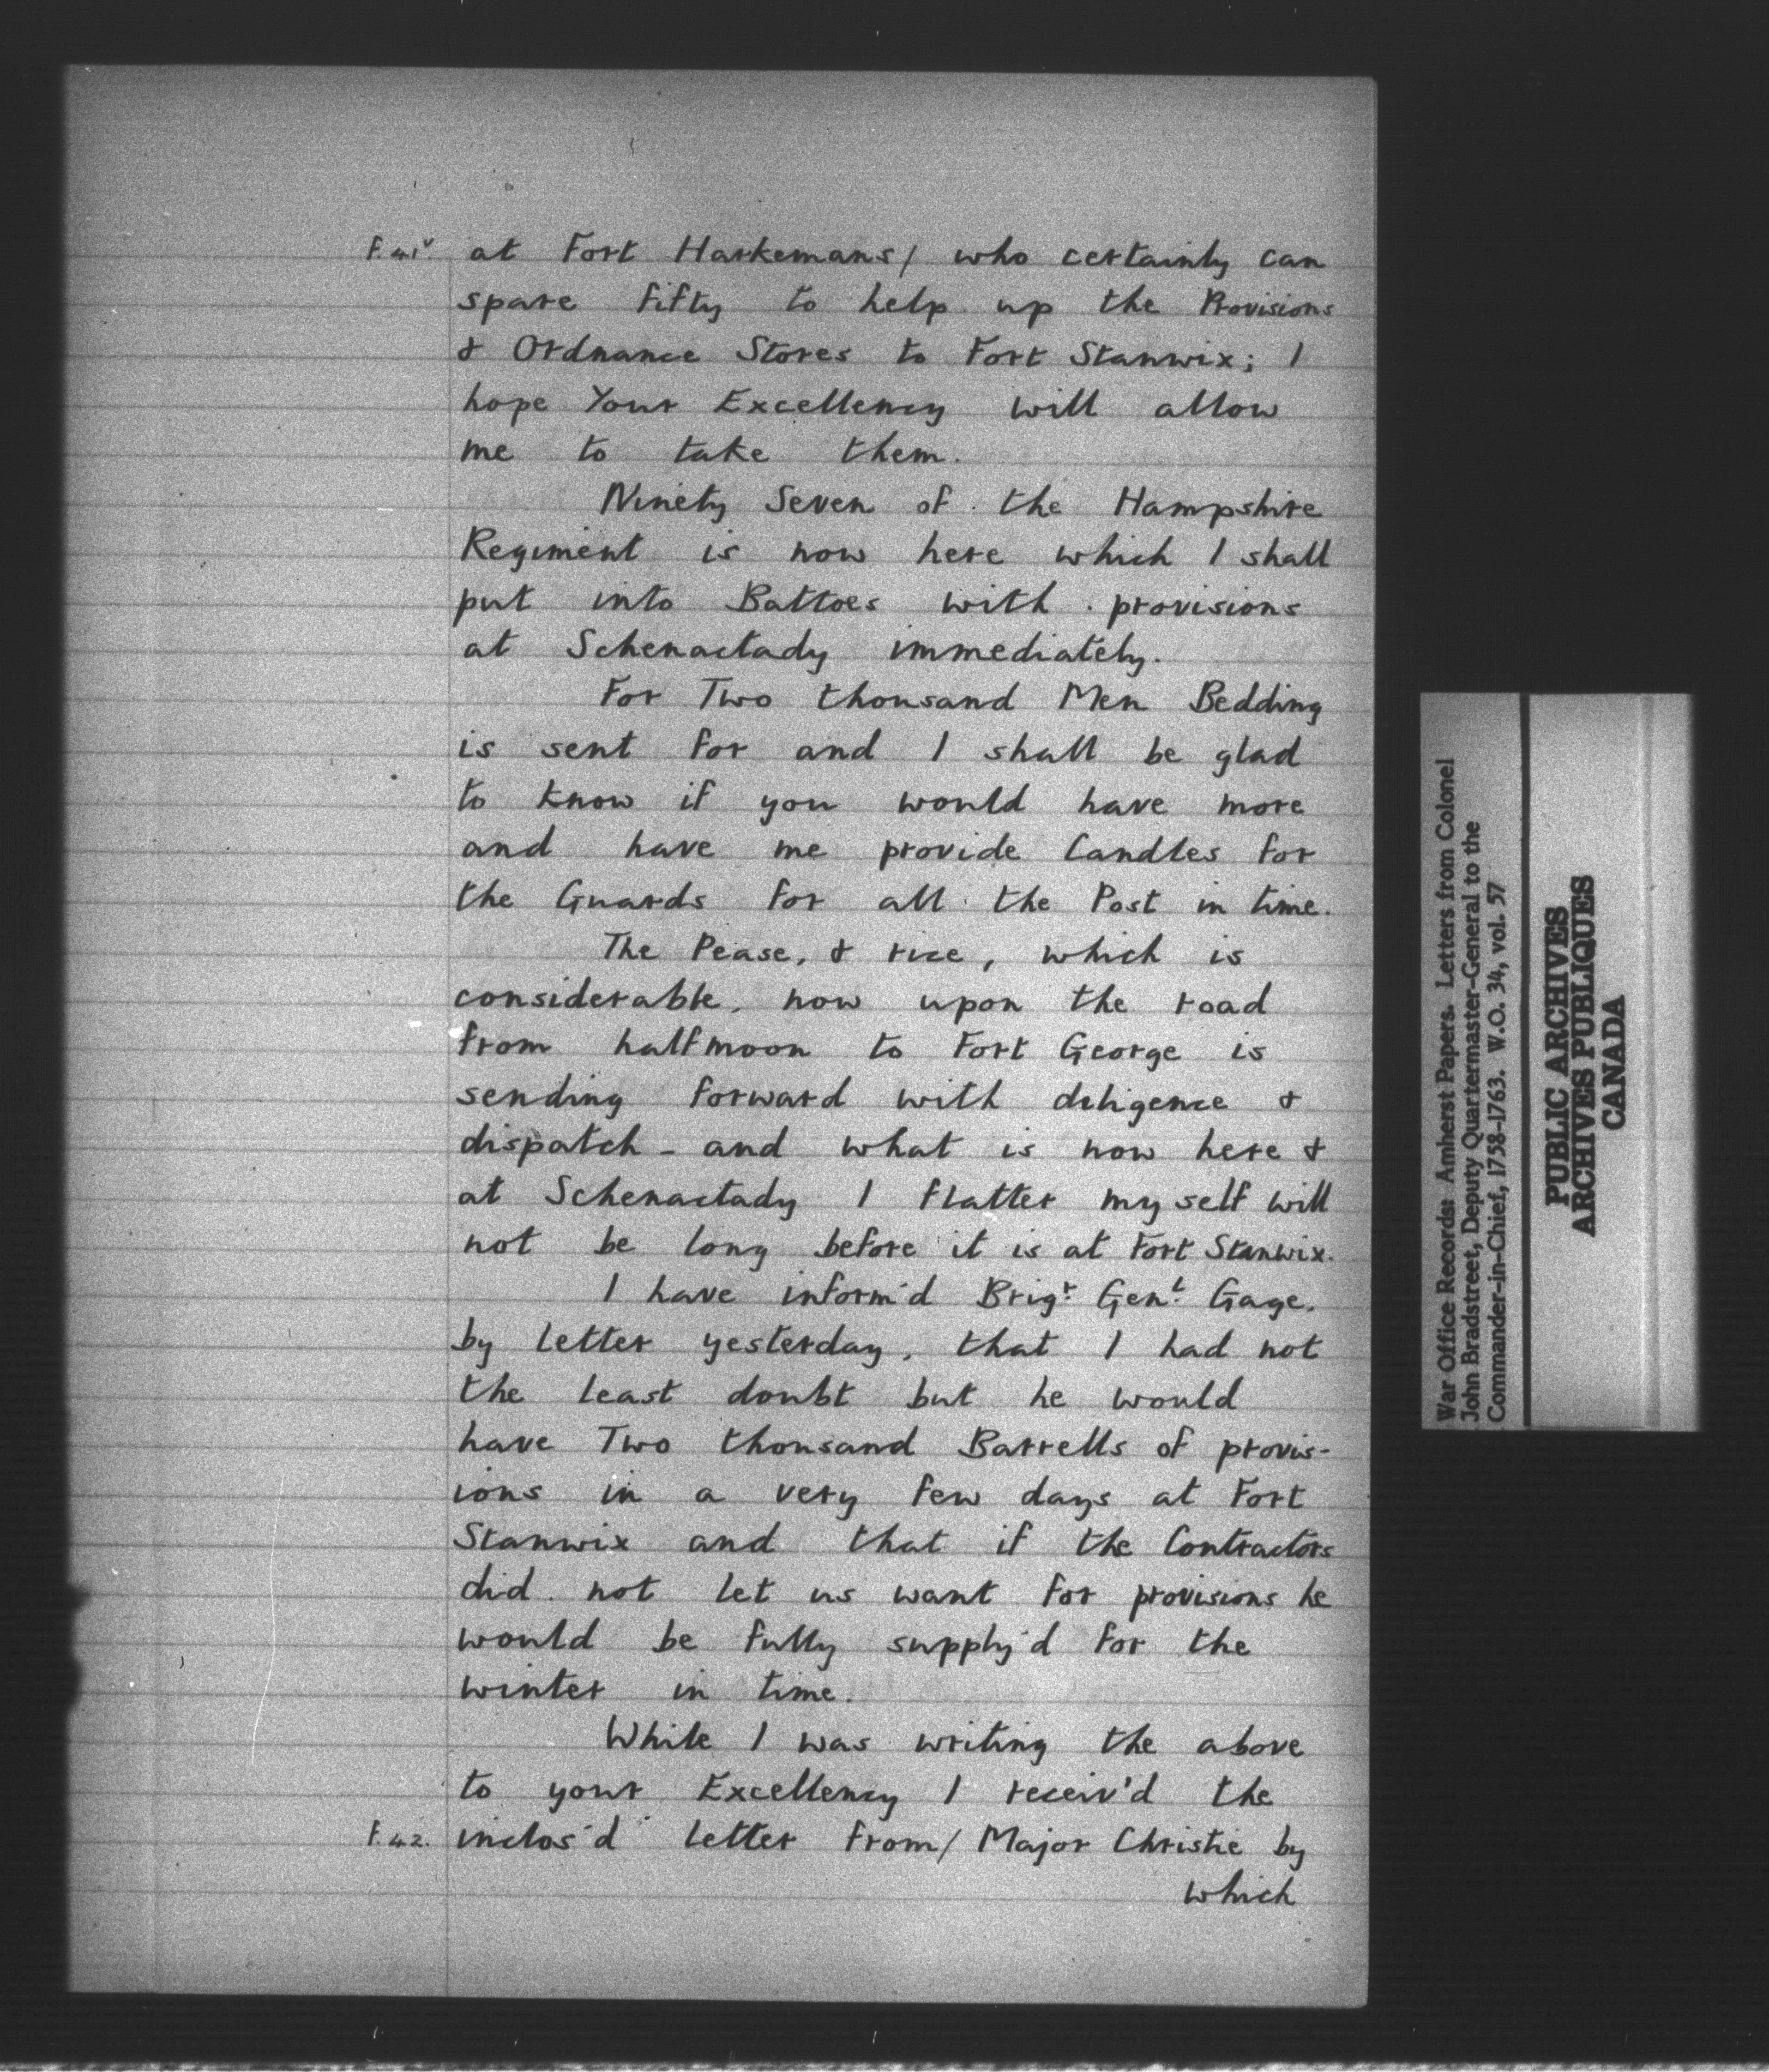 f.41v. at Fort Harkemans/ who certainly can
spare fifty to help up the Provisions
& Ordnance Stores to Fort Stanwix; I
hope Your Excellency will allow
me to take them.
Ninety Seven of the Hampshire
Regiment is now here which I shall
put into Battoes with provisions
at Schenactady immediately.
For Two thousand Men Bedding
is sent for and I shall be glad
to know if you would have more
and have me provide Candles for
the Guards for all the Post in time.
The Pease, & rice, which is
considerable, now upon the road
from halfmoon to Fort George is
sending forward with diligence &
dispatch - and what is now here &
at Schenactady I flatter myself will
not be long before it is at Fort Stanwix.
I have inform'd Brigr. Genl. Gage,
by Letter yesterday, that I had not
the least doubt but he would
have Two thousand Barrells of provis-
ions in a very few days at Fort
Stanwix and that if the Contractors
did not let us want for provisions he
would be fully supply'd for the
winter in time.
While I was writing the above
to your Excellency I receiv'd the
f.42. inclos'd letter from/ Major Christie by
which
War Office Records: Amherst Papers. Letters from Colonel
John Bradstreet, Deputy Quartermaster-General to the
Commander-in-Chief, 1758-1763. W.O. 34, vol. 57
PUBLIC ARCHIVES
ARCHIVES PUBLIQUES
CANADA